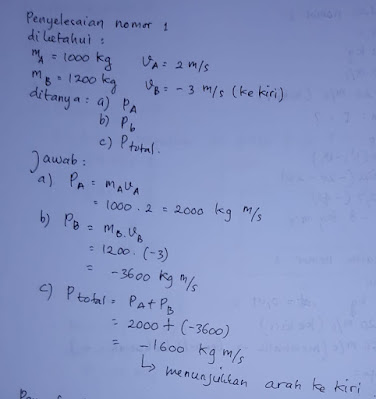 Penyelesaian nomor 1
diketahui :
m_A = 1000 kg   v_A = 2 m/s
m_B = 1200 kg   v_B = -3 m/s (ke kiri)
ditanya : a) P_A
b) P_b
c) P_total.
Jawab :
a) P_A = m_A v_A
= 1000 . 2 = 2000 kg m/s
b) P_B = m_B . v_B
= 1200 . (-3)
= -3600 kg m/s
c) P total = P_A + P_B
= 2000 + (-3600)
= -1600 kg m/s
↳ menunjukkan arah ke kiri